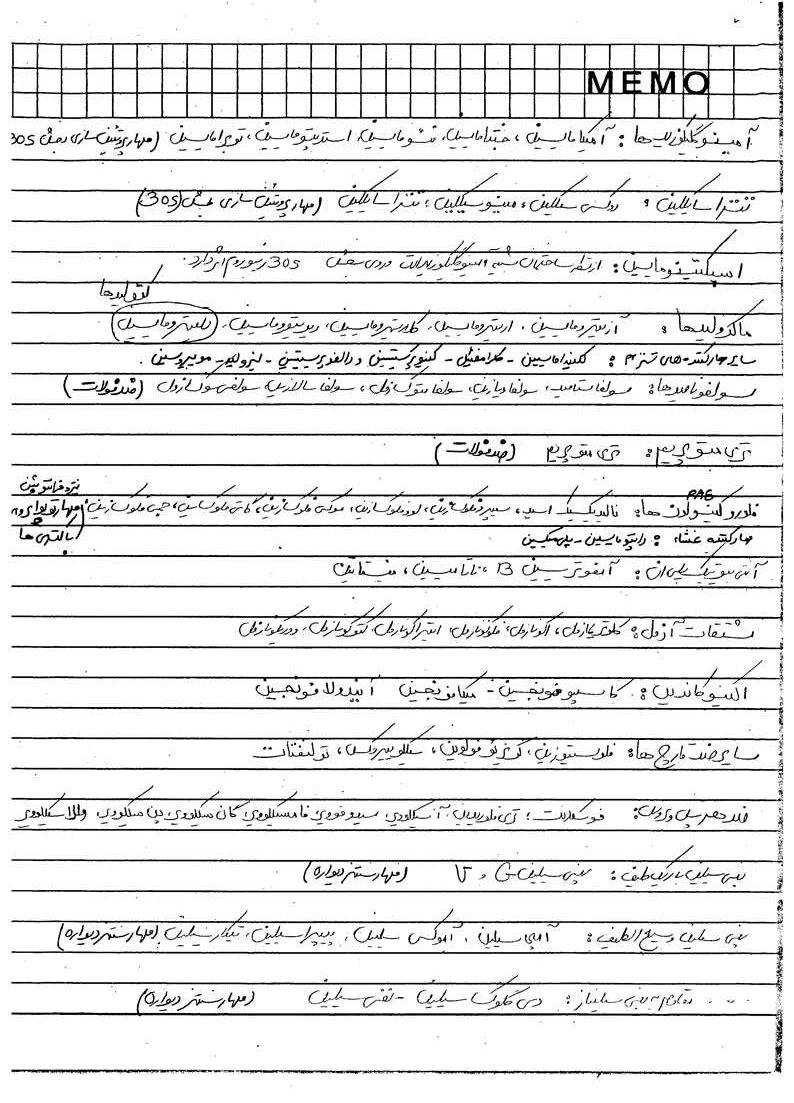 MEMO
آمینوگلیکوزیدها: آمیکاماسین، جنتاماسین، نئوماسین، استرپتوماسین، توبراماسین (مهار پروتئین سازی بخش 30S
تتراسایکلین: دوکسی سیکلین، مینوسیکلین، تتراسایکلین (مهار پروتئین سازی بخش 30S)
اسپکتینومایسین: از نظر ساختمان شبیه آمینوگلیکوزیدهاست و روی بخش 30S ریبوزوم اثر دارد.
کتولیدها
ماکرولیدها: آزیترومایسین، اریترومایسین، کلاریترومایسین، (تلیترومایسین)
سایر مهارکننده‌های سنتز: کلیندامایسین - کلرامفنیکل - کینوپریستین و دالفوپریستین - لینزولید - موپیروسین.
سولفونامیدها: سولفاستامید، سولفادیازین، سولفامتوکسازول، سولفاسالازین، سولفی سوکسازول (ضد فولات)
تری متوپریم: تری متوپریم (ضد فولات)
نیتروفورانتوئین
فلوروکینولون ها: نالیدیکسیک اسید، سیپروفلوکساسین، لووفلوکساسین، موکسی فلوکساسین، گاتی فلوکساسین، جمی فلوکساسین (مهار توپوایزومر
باکتری ها
مهارکننده غشاء: داپتومایسین - پلی میکسین
آنتی بیوتیک پلی ان: آمفوتریسین B، ناتامیسین، نیستاتین
مشتقات آزول: کلوتریمازول، اکونازول، فلوکونازول، ایتراکونازول، کتوکونازول، وریکونازول
اکینوکاندین: کاسپوفونجین - میکافونجین آنیدولافونجین
سایر ضد قارچ ها: فلوسیتوزین، گریزئوفولوین، سیکلوپیروکس، تولنفتات
ضد هرپس ویروس: فوسکارنت، تری فلوریدین، آسیکلوویر، سیدوفوویر، فامسیکلوویر گان سیکلوویر پن سیکلوویر والاسیکلوویر
پنی سیلین باریک طیف: پنی سیلین G و V (مهار سنتز دیواره)
پنی سیلین وسیع الطیف: آمپی سیلین، آموکسی سیلین، پیپراسیلین، تیکارسیلین (مهار سنتز دیواره)
.. .. مقاوم به پنی سیلیناز: دی کلوگزاسیلین - نفسیلین (مهار سنتز دیواره)